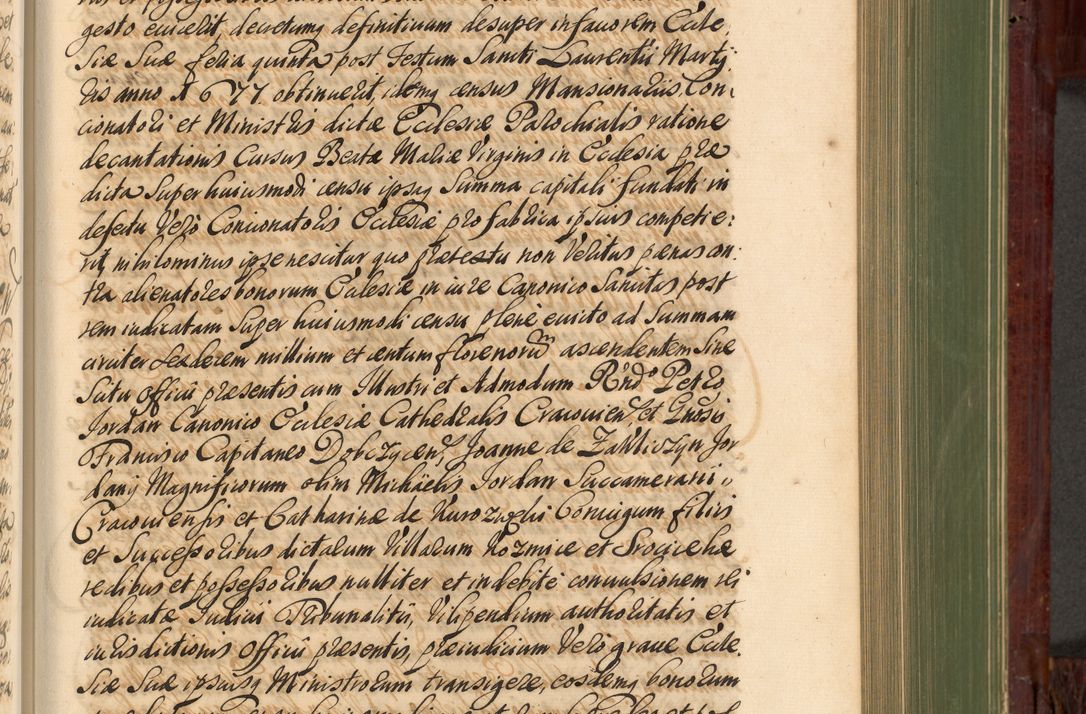 gesto evicerit, decretumq definitivum desuper in favorem Eccle
siæ Suæ feria quinta post Festum Sancti Laurentii Marty
ris anno 1677 obtinuerit, idemq census Mansionariis Con
cionatori et Ministris dictæ Ecclesiæ Parochialis ratione
decantationis Cursus Beatæ Mariæ Virginis in Ecclesia præ
dicta Super huiusmodi censu ipsaq Summa capitali fundati in
defectu Vero Concionatoris Ecclesiæ pro fabrica ipsius competie:
rit, nihilominus ipse nescitur quo prætextu non Veritus pænas con:
tra alienatores bonorum Ecclesiæ in iure Canonico Sancitas post
rem iudicatam Super huiusmodi censu plene evicto ad Summam
circiter Sexdecem millium et centum florenorum ascendentem Sine
Scitu officii præsentis cum Illustri et Admodum Rndo Petro
Jordan Canonico Ecclesiæ Cathedralis Cracovien, et Gnosis
Francisco Capitaneo Dobczycen, Joanne de Zakliczyn Jor
dany Magnificorum olim Michaelis Jordan Succamerarii
Cracoviensis et Catharinæ de Conuigum filiis
et Successoribus dictarum Villarum Kozmice et Srocice hæ
redibus et possessoribus nulliter et indebite convulsionem rei
iudicatæ Iudicii Tribunalitii, Vilipendium authoritatis et
iurisdictionis Officii præsentis, præiudicium Vero grave Eccle.
Siæ Suæ ipsiusq Ministrorum transigere, eosdemq bonorum